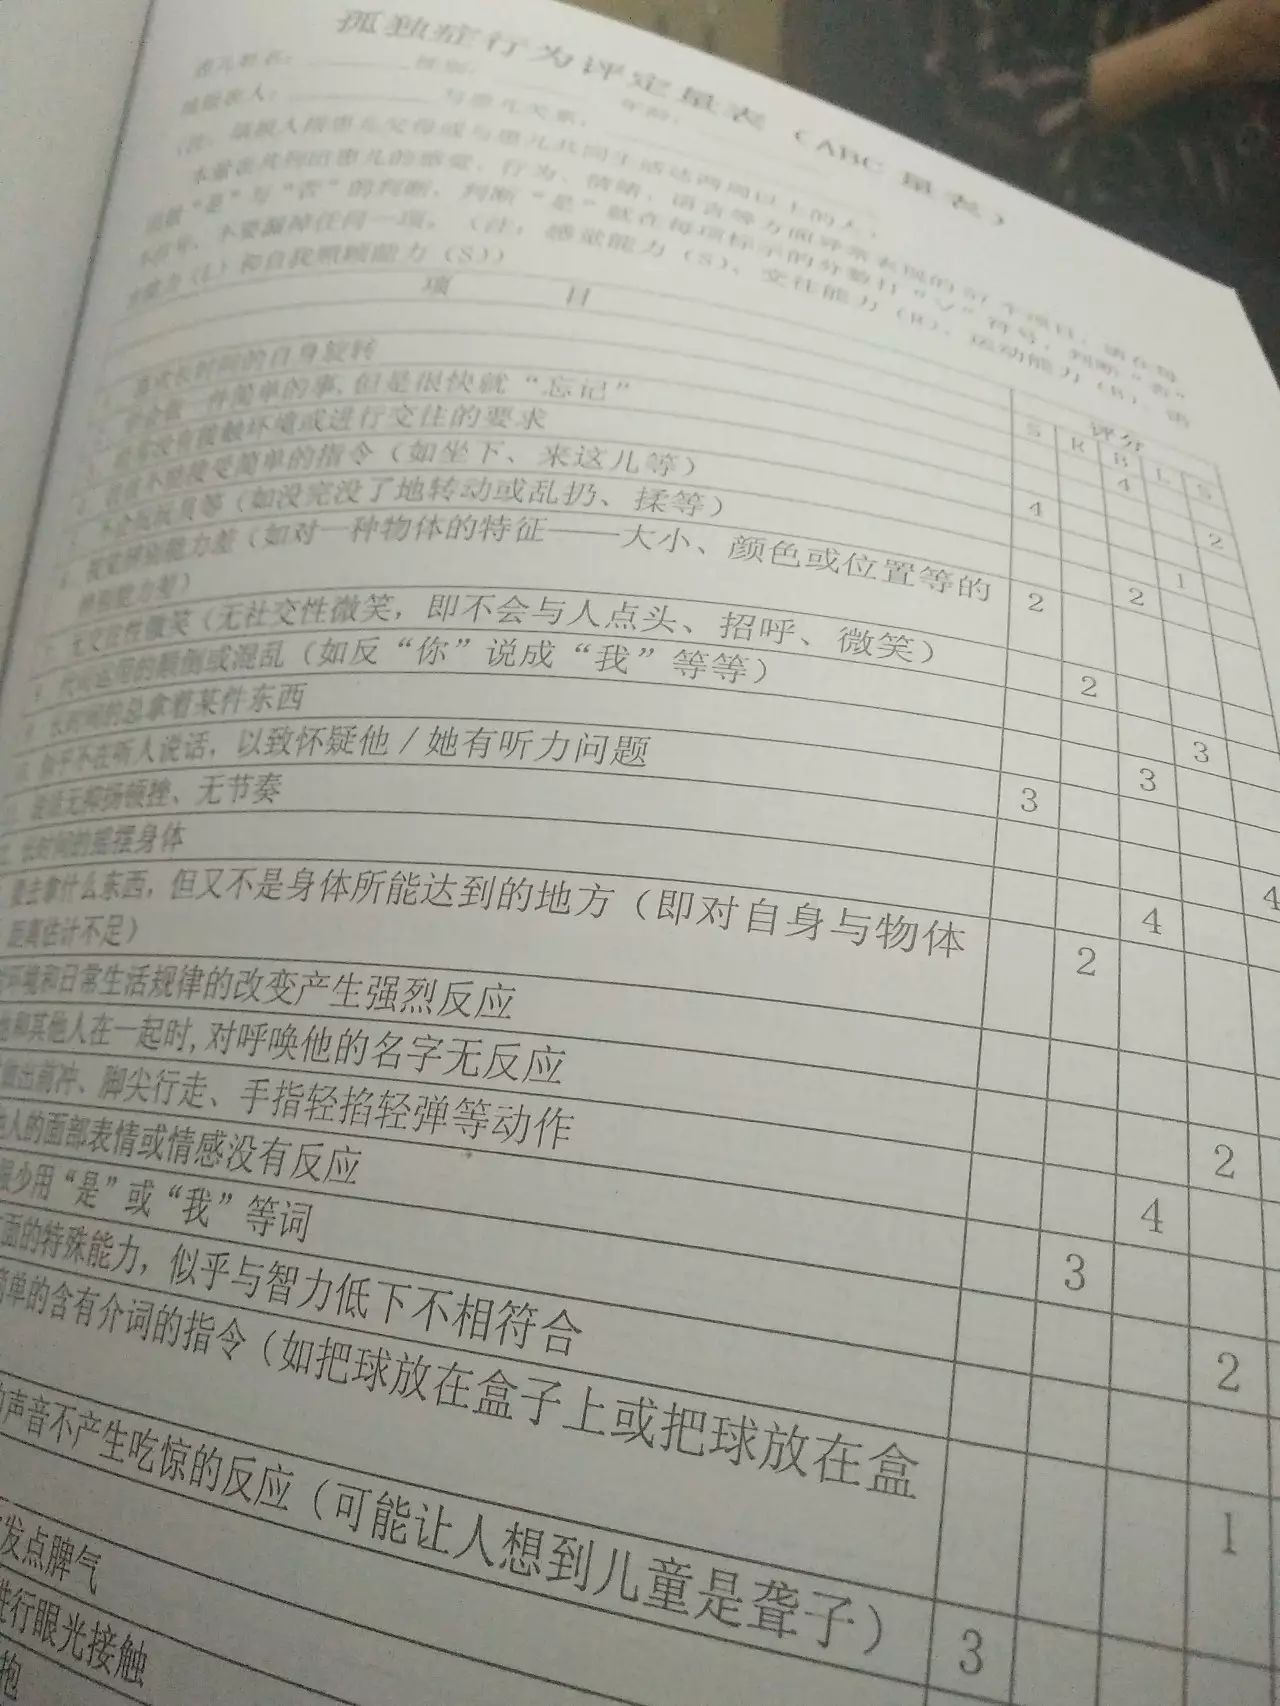 孤独症行为评定量表（ABC 量表）
患儿姓名：________性别：________年龄：________
填报表人：________与患儿关系：________
（注：填报人需患儿父母或与患儿共同生活达两周以上的人）
本量表共列出患儿的感觉、行为、情绪、语言等方面异常表现的 57 个项目，请在每
项做“是”与“否”的判断，判断“是”就在每项标示的分数打“√”符号，判断“否”
不打号，不要漏掉任何一项。（注：感觉能力（S）、交往能力（R）、运动能力（B）、语
言能力（L）和自我照顾能力（S））
项 目 评分
S R B L S
喜欢长时间的自身旋转 4
学会做一件简单的事,但是很快就“忘记” 2
经常没有接触环境或进行交往的要求 4
往往不能接受简单的指令（如坐下、来这儿等） 1
不会玩玩具等（如没完没了地转动或乱扔、揉等） 2
视觉辨别能力差（如对一种物体的特征——大小、颜色或位置等的 2
辨别能力差）
无交往性微笑（无社交性微笑，即不会与人点头、招呼、微笑） 2
代词运用的颠倒或混乱（如反“你”说成“我”等等） 3
长时间的总拿着某件东西 3
似乎不在听人说话，以致怀疑他／她有听力问题 3
说话无抑扬顿挫、无节奏 4
长时间的摇摆身体 4
要去拿什么东西，但又不是身体所能达到的地方（即对自身与物体 2
距离估计不足）
环境和日常生活规律的改变产生强烈反应
他和其他人在一起时,对呼唤他的名字无反应 2
做出前冲、脚尖行走、手指轻掐轻弹等动作 4
他人的面部表情或情感没有反应 3
很少用“是”或“我”等词 2
面的特殊能力，似乎与智力低下不相符合
简单的含有介词的指令（如把球放在盒子上或把球放在盒 1
声音不产生吃惊的反应（可能让人想到儿童是聋子） 3
发点脾气
进行眼光接触
抱